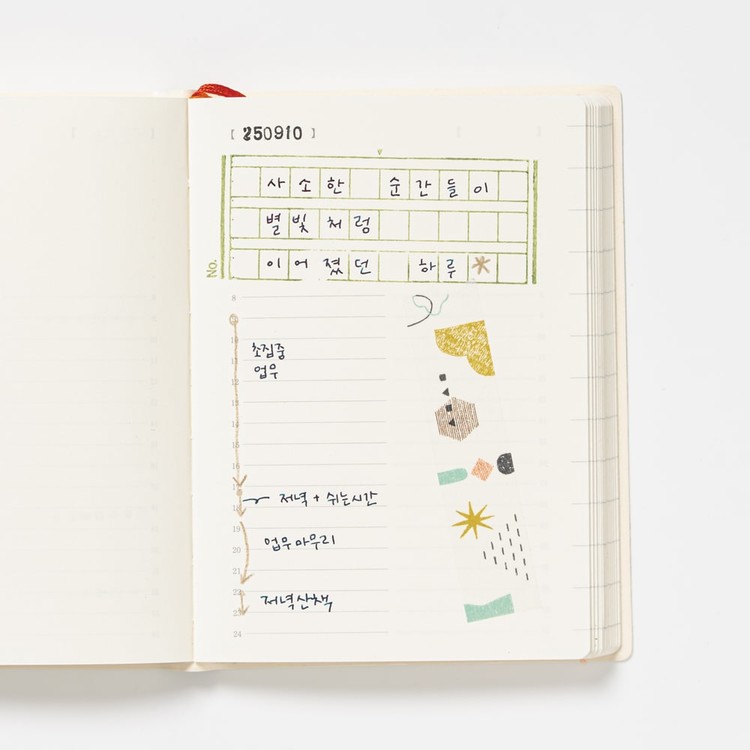 [ 250910 ]
사소한 순간들이
별빛처럼
No.
이어졌던 하루
8
10
초집중
11
업무
12
13
14
15
16
17
저녁 + 쉬는시간
18
19
업무마무리
20
21
22
저녁산책
23
24